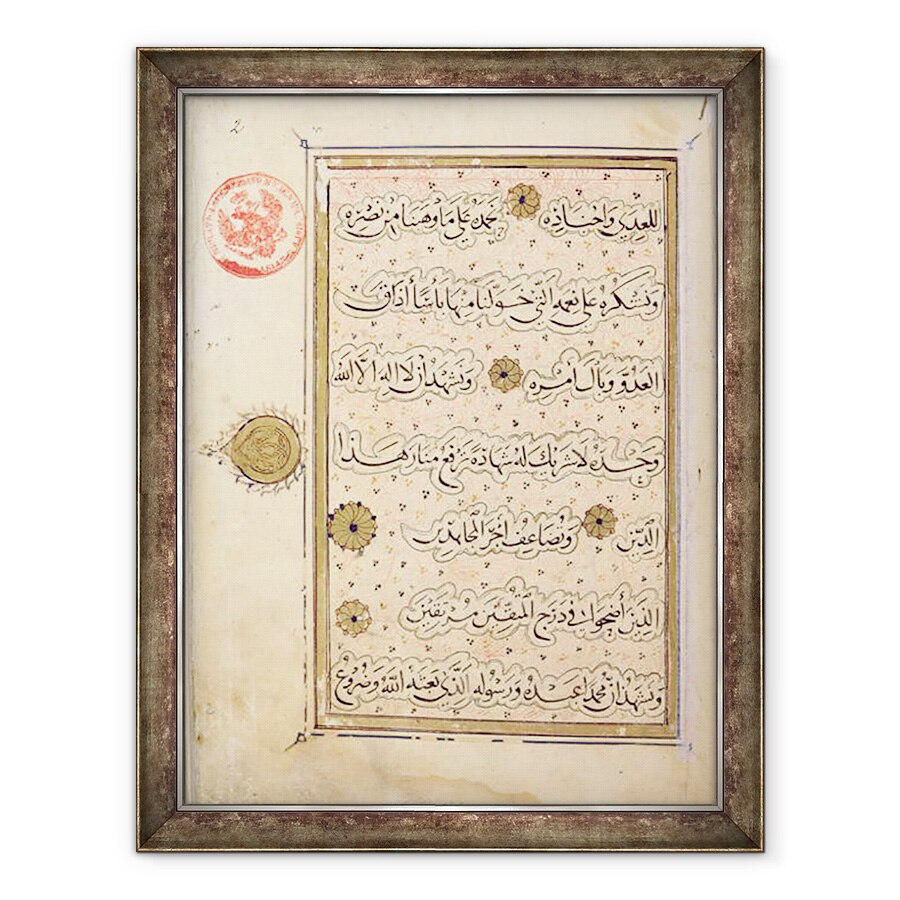 2
للعدي واخاذه نحمده على ما وهبنا من نصره
ونشكره على نعمه التي خولنا منها بأسا أذاق
العدو وبال أمره ونشهد أن لا إله إلا الله
وحده لا شريك له شهادة ترفع منار هذا
الدين وتضاعف أجر المجاهدين
الذين أضحوا في درج المتقين مرتقين
ونشهد أن محمدا عبده ورسوله الذي بعثه الله وضروع